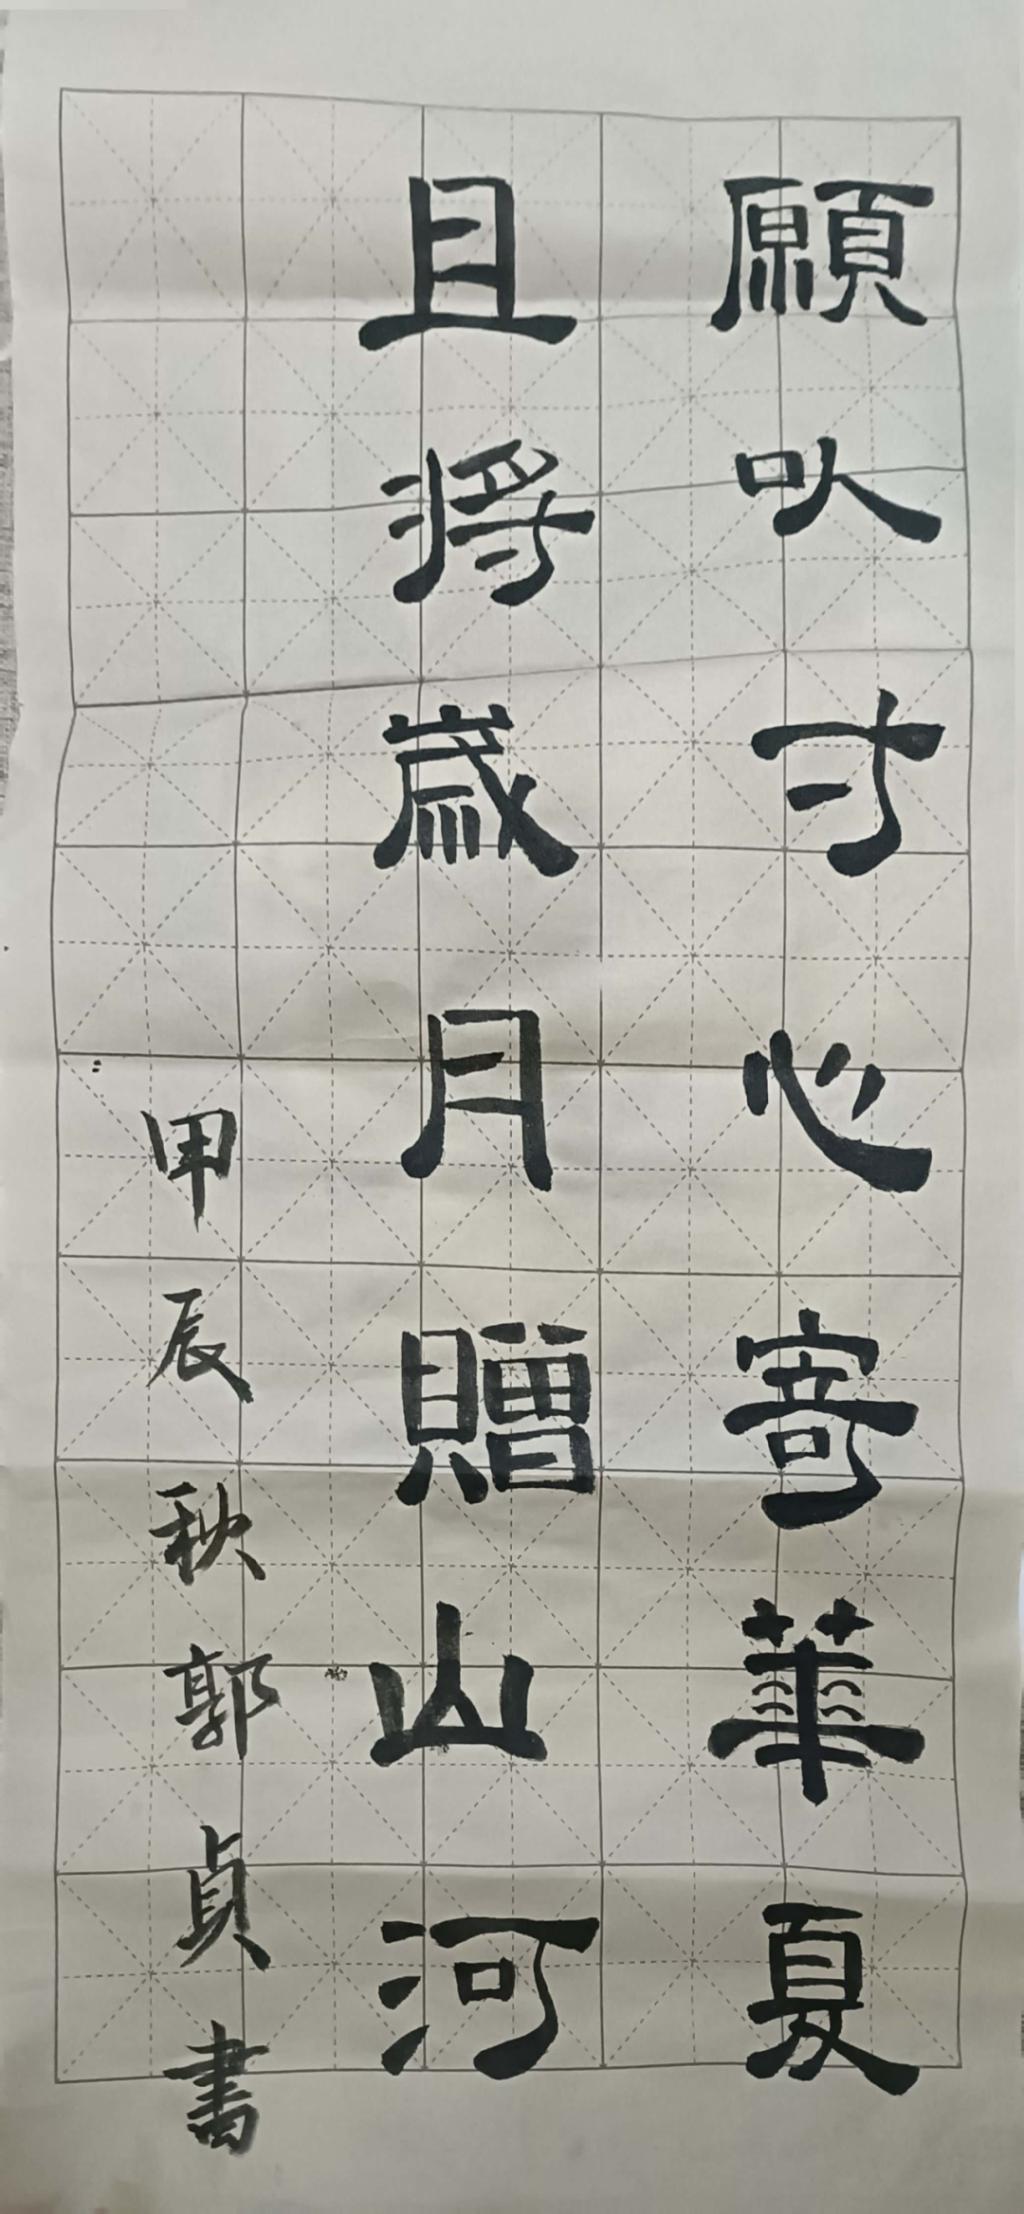 願以寸心寄華夏
且將歲月贈山河
甲辰秋郭貞書